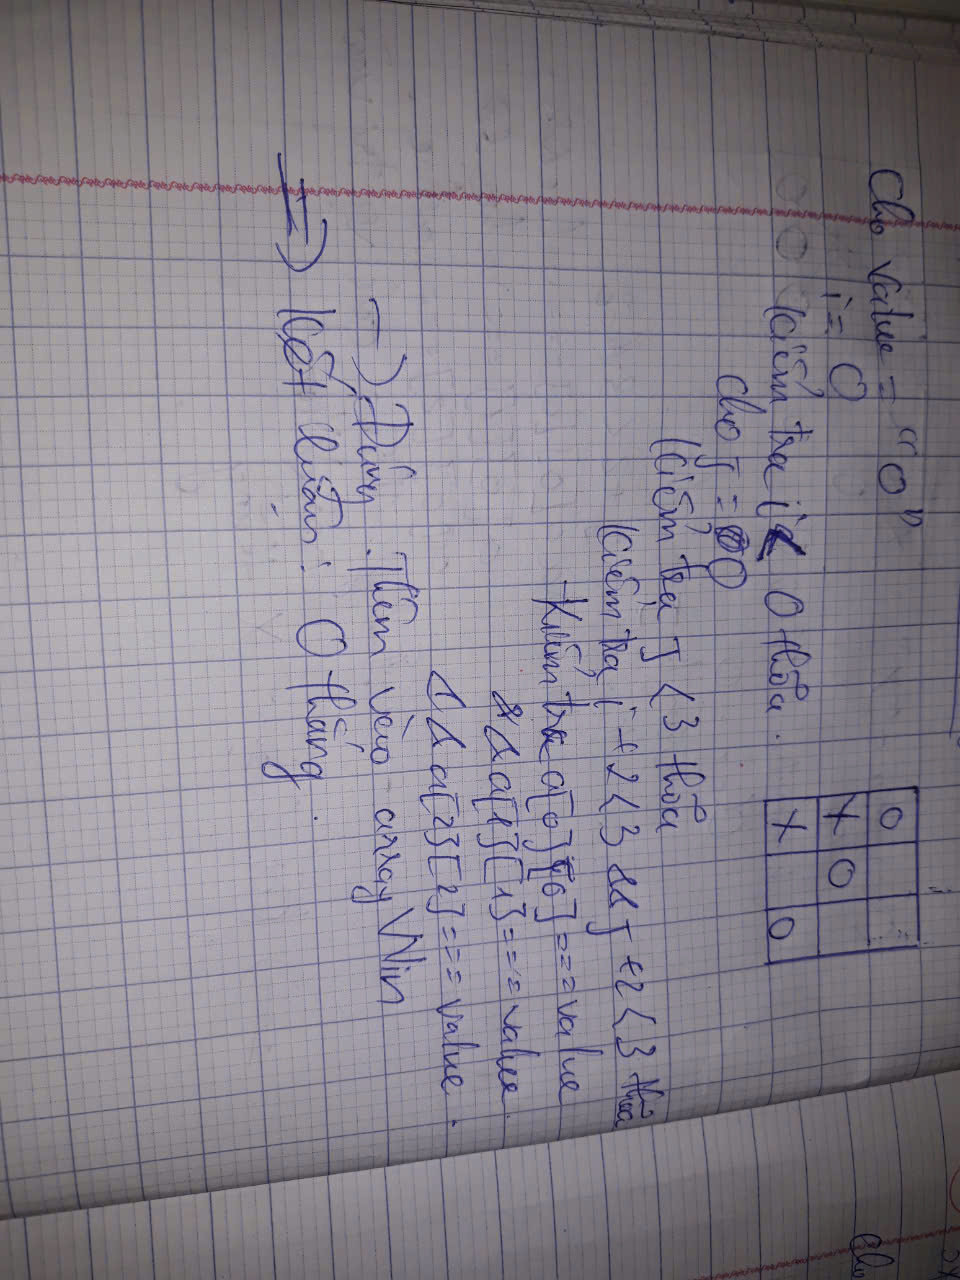 Cho value = "O"
i = 0
Kiểm tra i < 0 thỏa.
Cho j = 0
Kiểm tra j < 3 thỏa
Kiểm tra i + 2 < 3 && j + 2 < 3 thỏa
- Kiểm tra a[0][0] === value
&& a[1][1] === value.
&& a[2][2] === value.
→ Đúng. Thêm vào array Win
⇒ Kết luận: O thắng.
O
X O
X O